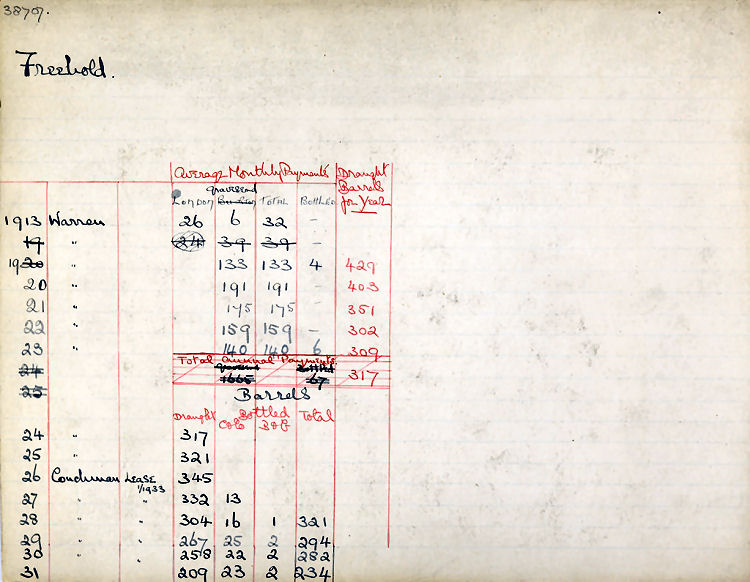 38707.
Freehold.
Average Monthly Payments Draught
Barrels
for Year
Gravesend
London Burton Total Bottled
1913 Warren 26 6 32 -
19 " 24 39 39 -
1920 " 133 133 4 429
20 " 191 191 - 403
21 " 175 175 - 351
22 " 159 159 - 302
23 " 140 140 6 309
Total Annual Payments.
24 Gravesend Bottled
1665 67 317
25
Barrels
Draught Bottled Total
Co's B&G
24 " 317
25 " 321
26 Couchman Lease 345
1/1933
27 " " 332 13
28 " " 304 16 1 321
29 " " 267 25 2 294
30 " " 258 22 2 282
31 209 23 2 234